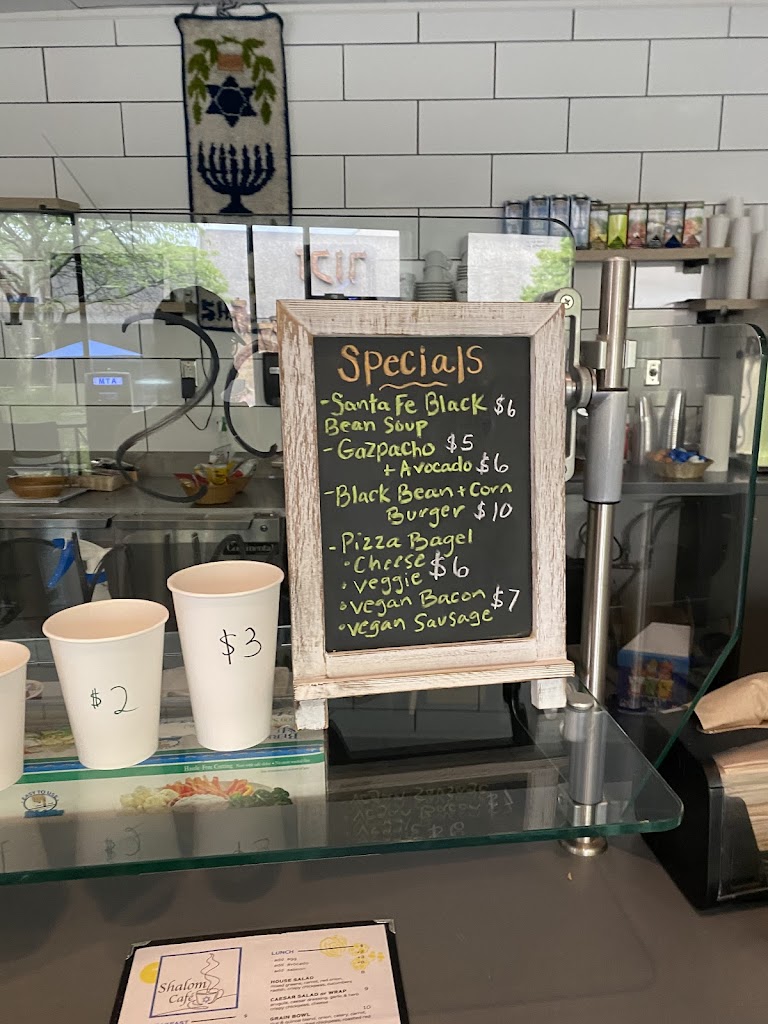 MTA
Specials
- Santa Fe Black $6
Bean Soup
- Gazpacho $5
+ Avocado $6
- Black Bean + Corn
Burger $10
- Pizza Bagel
• Cheese
• veggie $6
• vegan Bacon $7
• vegan Sausage
$2
$3
Shalom
Café
LUNCH
HOUSE SALAD
CAESAR SALAD or WRAP
GRAIN BOWL 10